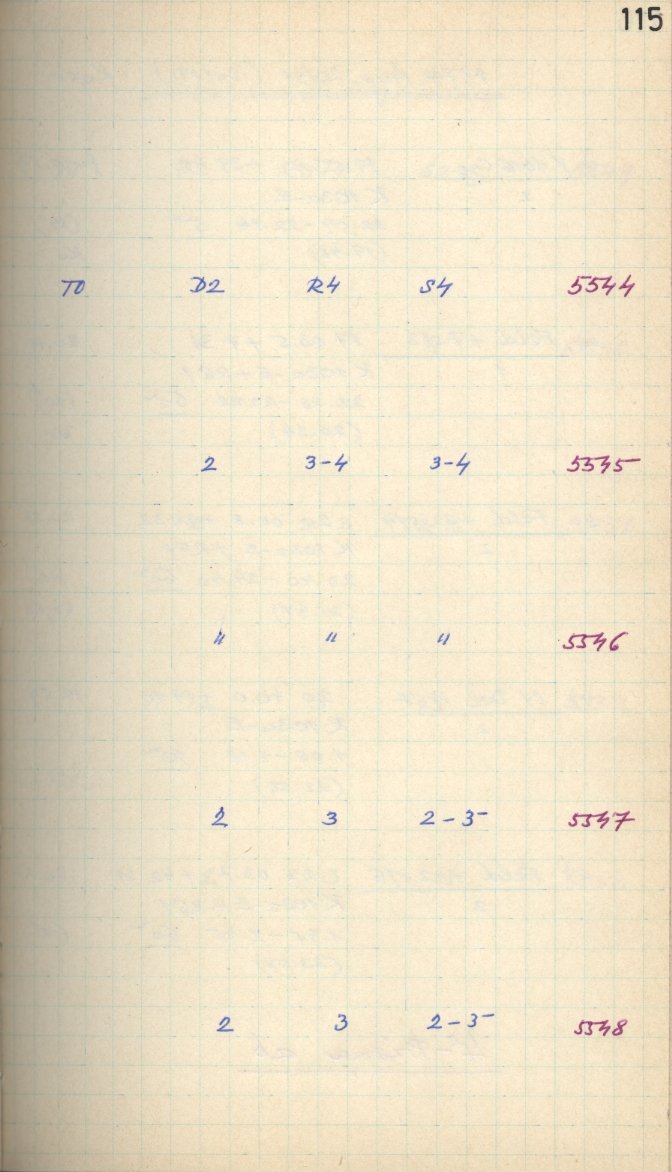 115
TO D2 R4 S4 5544
2 3-4 3-4 5545
" " " 5546
2 3 2-3 5547
2 3 2-3 5548